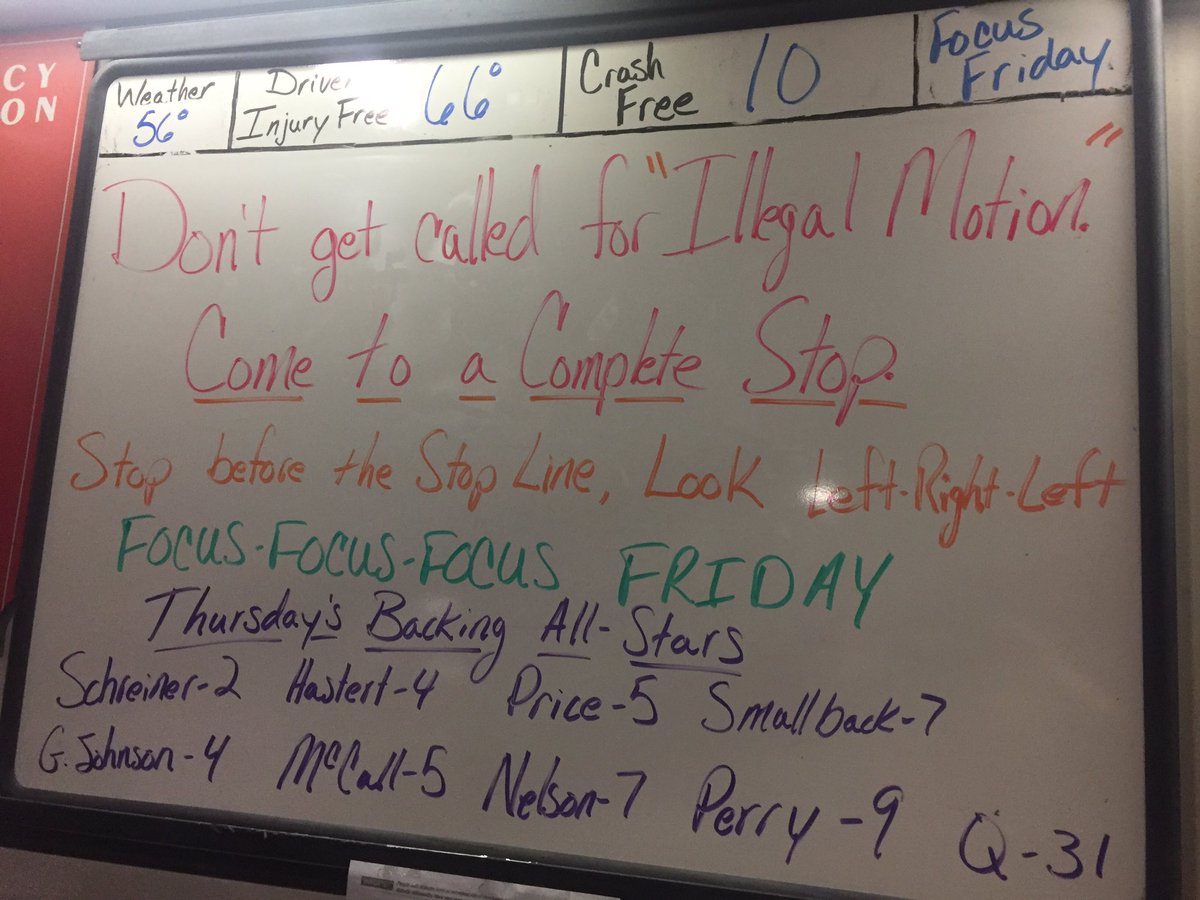 CY
ON
Weather
56°
Driver
Injury Free
66°
Crash
Free
10
Focus
Friday.
Don't get called for "Illegal Motion."
Come to a Complete Stop.
Stop before the Stop Line, Look Left-Right-Left
FOCUS-FOCUS-FOCUS FRIDAY
Thursday's Backing All-Stars
Schreiner-2 Hastert-4 Price-5 Smallback-7
G. Johnson-4 McCall-5 Nelson-7 Perry-9 Q-31